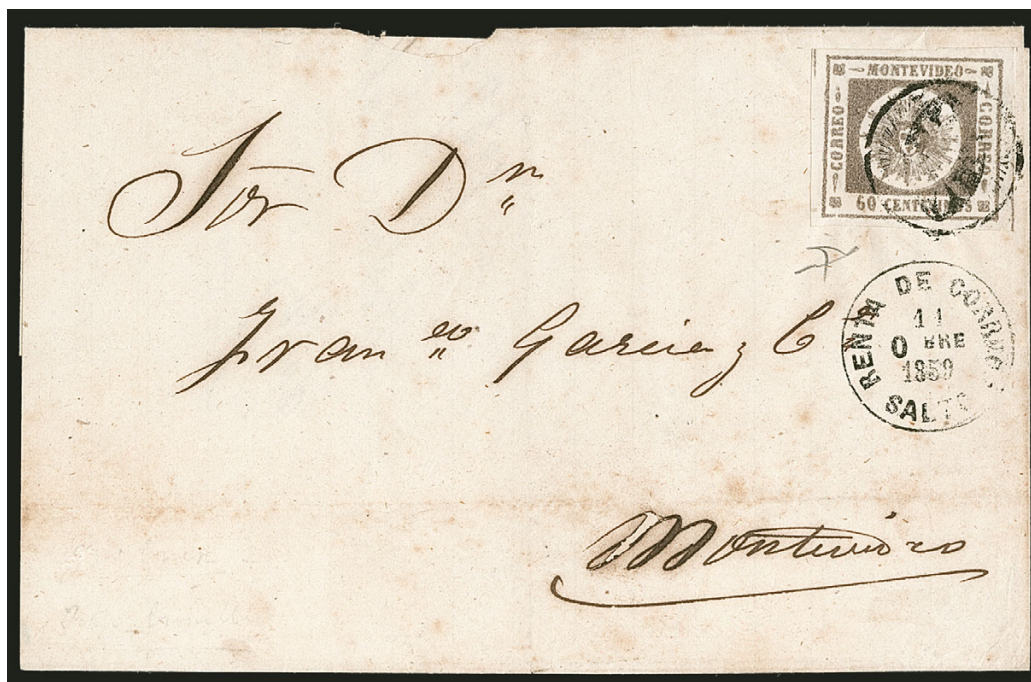 MONTEVIDEO
CORREO
CORREO
60 CENTESIMOS
Sor Dn
Franco Garcia y Ca
11
OBRE
1859
SALTO
Montevideo